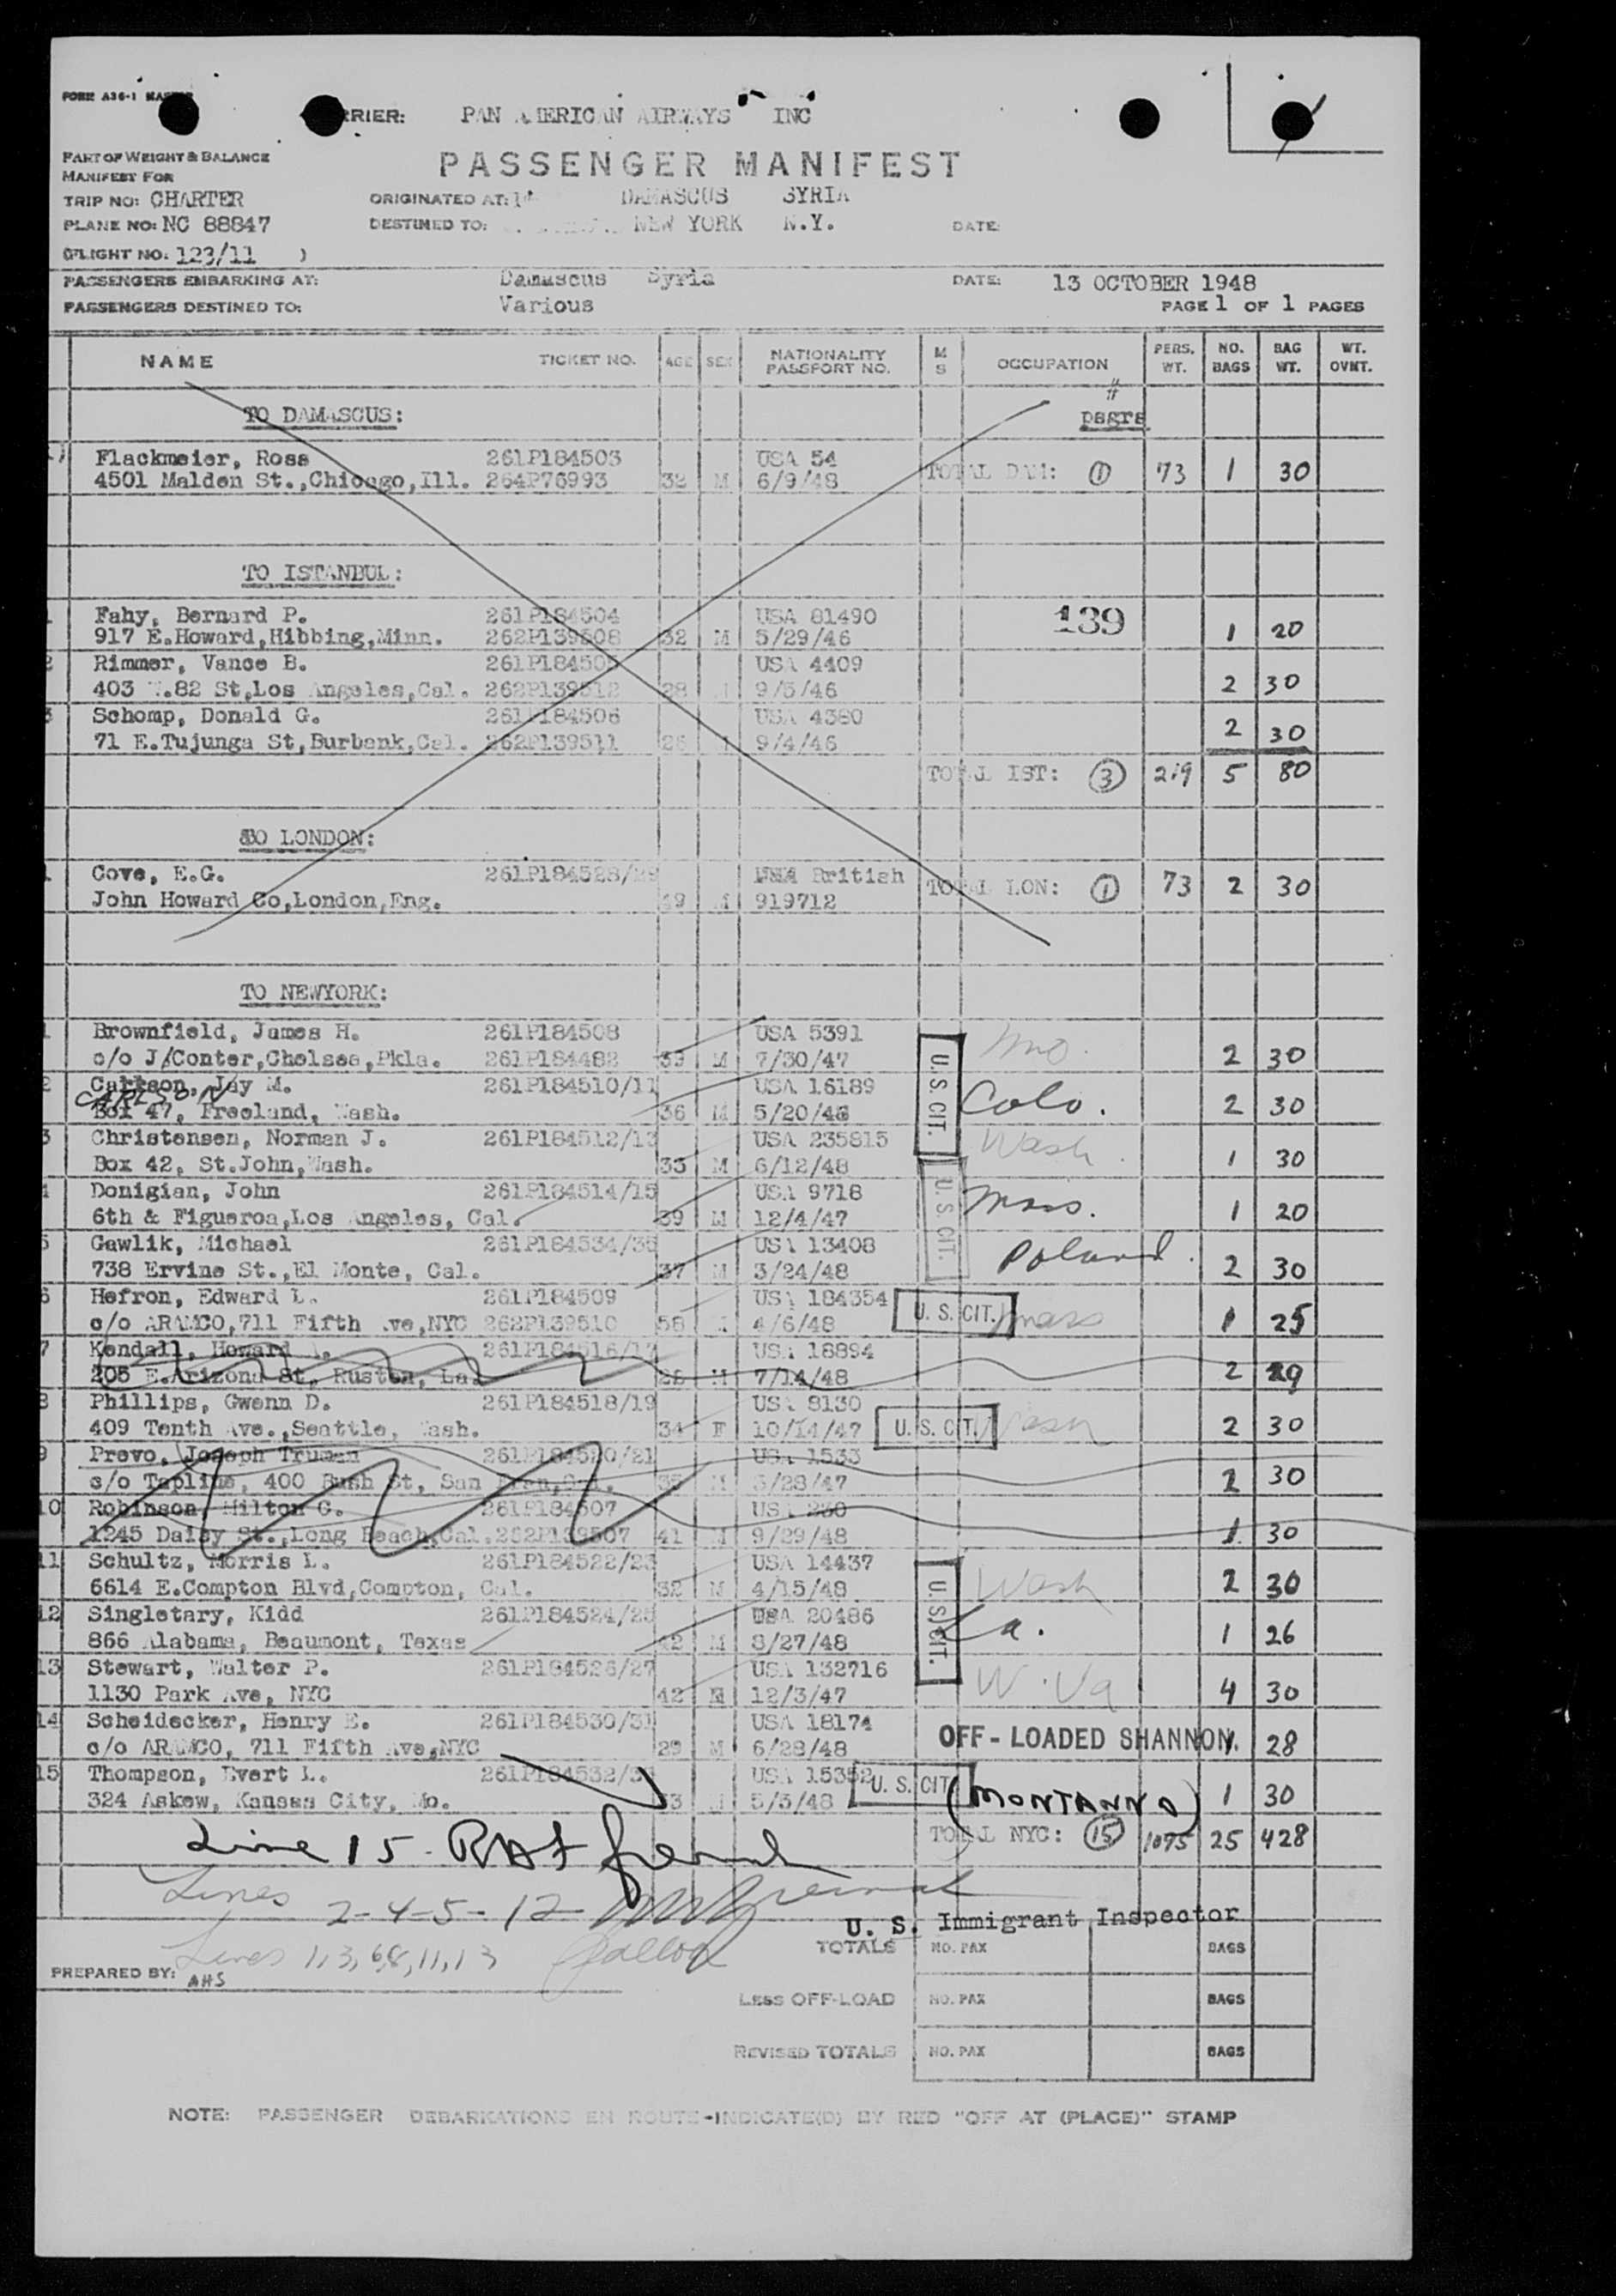 FORM A36-1
CARRIER: PAN AMERICAN AIRWAYS INC
PART OF WEIGHT & BALANCE
MANIFEST FOR
PASSENGER MANIFEST
TRIP NO: CHARTER ORIGINATED AT: DAMASCUS SYRIA
PLANE NO: NC 88847 DESTINED TO: NEW YORK N.Y. DATE:
(FLIGHT NO: 123/11 )
PASSENGERS EMBARKING AT: Damascus Syria DATE: 13 OCTOBER 1948
PASSENGERS DESTINED TO: Various PAGE 1 OF 1 PAGES
NAME TICKET NO. AGE SEX NATIONALITY PASSPORT NO. M S OCCUPATION PERS. WT. NO. BAGS BAG WT. WT. OVNT.
TO DAMASCUS: # psgrs
Flackmeier, Ross 261P184503 USA 54
4501 Malden St.,Chicago,Ill. 264P76993 32 M 6/9/48 TOTAL DAM: 1 73 1 30
TO ISTANBUL:
1 Fahy, Bernard P. 261P184504 USA 81490 139
917 E.Howard,Hibbing,Minn. 262P139508 32 M 5/29/46 1 20
2 Rimmer, Vance B. 261P184505 USA 4409
403 W.82 St,Los Angeles,Cal. 262P139512 28 M 9/5/46 2 30
3 Schomp, Donald G. 261P184506 USA 4380
71 E.Tujunga St,Burbank,Cal. 262P139511 26 M 9/4/46 2 30
TOTAL IST: 3 219 5 80
TO LONDON:
1 Cove, E.G. 261P184528/29 British
John Howard Co,London,Eng. 49 M 919712 TOTAL LON: 1 73 2 30
TO NEWYORK:
1 Brownfield, James H. 261P184508 USA 5391
c/o J/Conter,Chelsea,Pkla. 261P184482 39 M 7/30/47 U.S. CIT. Mo. 2 30
2 Cartson, Jay M. 261P184510/11 USA 16189
CARLSON
Box 47, Freeland, Wash. 36 M 5/20/48 Colo. 2 30
3 Christensen, Norman J. 261P184512/13 USA 235815
Box 42, St.John,Wash. 33 M 6/12/48 Wash. 1 30
4 Donigian, John 261P184514/15 USA 9718
6th & Figueroa,Los Angeles, Cal. 39 M 12/4/47 U.S. CIT. Mass. 1 20
5 Gawlik, Michael 261P184534/35 USA 13408
738 Ervine St.,El Monte, Cal. 37 M 3/24/48 Poland. 2 30
6 Hefron, Edward L. 261P184509 USA 184354
c/o ARAMCO,711 Fifth Ave,NYC 262P139510 58 M 4/6/48 U. S. CIT. Mass 1 25
7 Kendall, Howard A. 261P184516/17 USA 18894
205 E.Arizona St, Ruston, La. 28 M 7/14/48 2 29
8 Phillips, Gwenn D. 261P184518/19 USA 8130
409 Tenth Ave.,Seattle, Wash. 34 F 10/14/47 U. S. CIT. Wash 2 30
9 Prevo, Joseph Truman 261P184520/21 USA 1533
c/o Tapline, 400 Bush St, San Fran,Cal. 35 M 3/28/47 2 30
10 Robinson Milton G. 261P184507 USA 230
1245 Daisy St.,Long Beach,Cal. 262P139507 41 M 9/29/48 1 30
11 Schultz, Morris L. 261P184522/23 USA 14437
6614 E.Compton Blvd,Compton, Cal. 32 M 4/15/48 U.S. CIT. Wash 2 30
12 Singletary, Kidd 261P184524/25 USA 20486
866 Alabama, Beaumont, Texas 42 M 8/27/48 La. 1 26
13 Stewart, Walter P. 261P184526/27 USA 132716
1130 Park Ave, NYC 42 M 12/3/47 W. Va 4 30
14 Scheidecker, Henry E. 261P184530/31 USA 18174
c/o ARAMCO, 711 Fifth Ave,NYC 29 M 6/28/48 OFF-LOADED SHANNON. 1 28
15 Thompson, Evert L. 261P184532/33 USA 15352
324 Askew, Kansas City, Mo. 33 M 5/3/48 U. S. CIT. (MONTANNA) 1 30
TOTAL NYC: 15 1075 25 428
Line 15
Lines 2-4-5-12
U. S. Immigrant Inspector
Lines 1,3,6,8,11,13
TOTALS NO. PAX BAGS
PREPARED BY: AHS
LESS OFF-LOAD NO. PAX BAGS
REVISED TOTALS NO. PAX BAGS
NOTE: PASSENGER DEBARKATIONS EN ROUTE-INDICATE(D) BY RED "OFF AT (PLACE)" STAMP